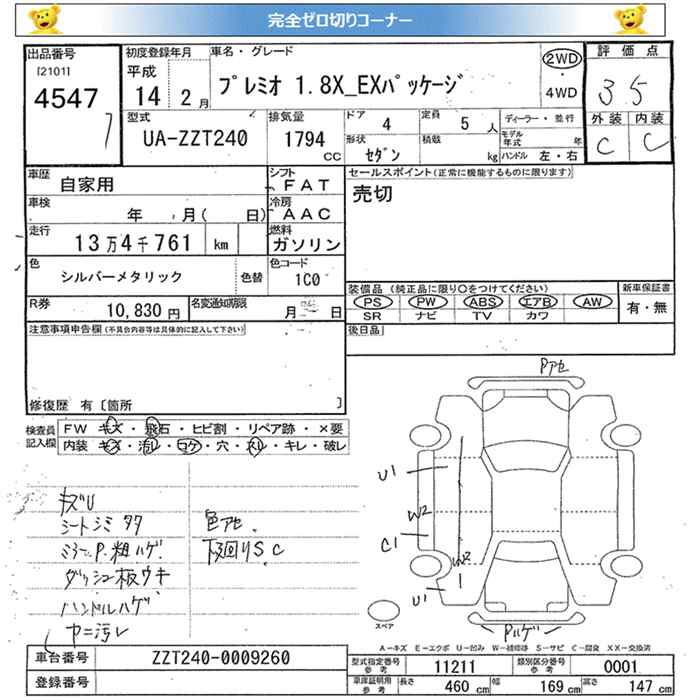 完全ゼロ切りコーナー
出品番号
[2101]
4547
7
初度登録年月
平成
14 2月
車名・グレード
プレミオ 1.8X_EXパッケージ
2WD
・
4WD
評価点
3.5
外装 内装
C C
型式
UA-ZZT240
排気量
1794
CC
ドア 4
形状
セダン
定員 5 人
積載
kg
ディーラー・並行
モデル
年式 年
ハンドル 左・右
車歴
自家用
シフト
FAT
車検
年 月( 日)
冷房
AAC
走行
13万4千761 km
燃料
ガソリン
色
シルバーメタリック
色替
色コード
1C0
R券
10,830円
名変通知期限
月 日
セールスポイント(正常に機能するものに限ります)
売切
装備品 (純正品に限り○をつけてください)
PS PW ABS エアB AW
SR ナビ TV カワ
新車保証書
有・無
後日品
注意事項申告欄(不具合内容等は具体的に記入して下さい)
修復歴 有〔箇所 〕
検査員
記入欄
FW キズ・飛石・ヒビ割・リペア跡・×要
内装 キズ・汚レ・コゲ・穴・スレ・キレ・破レ
キズU
シートシミ タタ
ミラーP.粗ハゲ.
ダッシュ板ウキ
ハンドルハゲ
ヤニ汚レ
色アセ.
下廻りS.C
Pアセ
U1
W2
C1
W2
U1
Pハゲ
スペア
A-キズ E-エクボ U-凹ミ W-補修跡 S-サビ C-腐食 XX-交換済
車台番号 ZZT240-0009260
登録番号
型式指定番号
参考
11211
類別区分番号
参考
0001
車庫証明用
参考
長さ 460 cm 幅 169 cm 高さ 147 cm